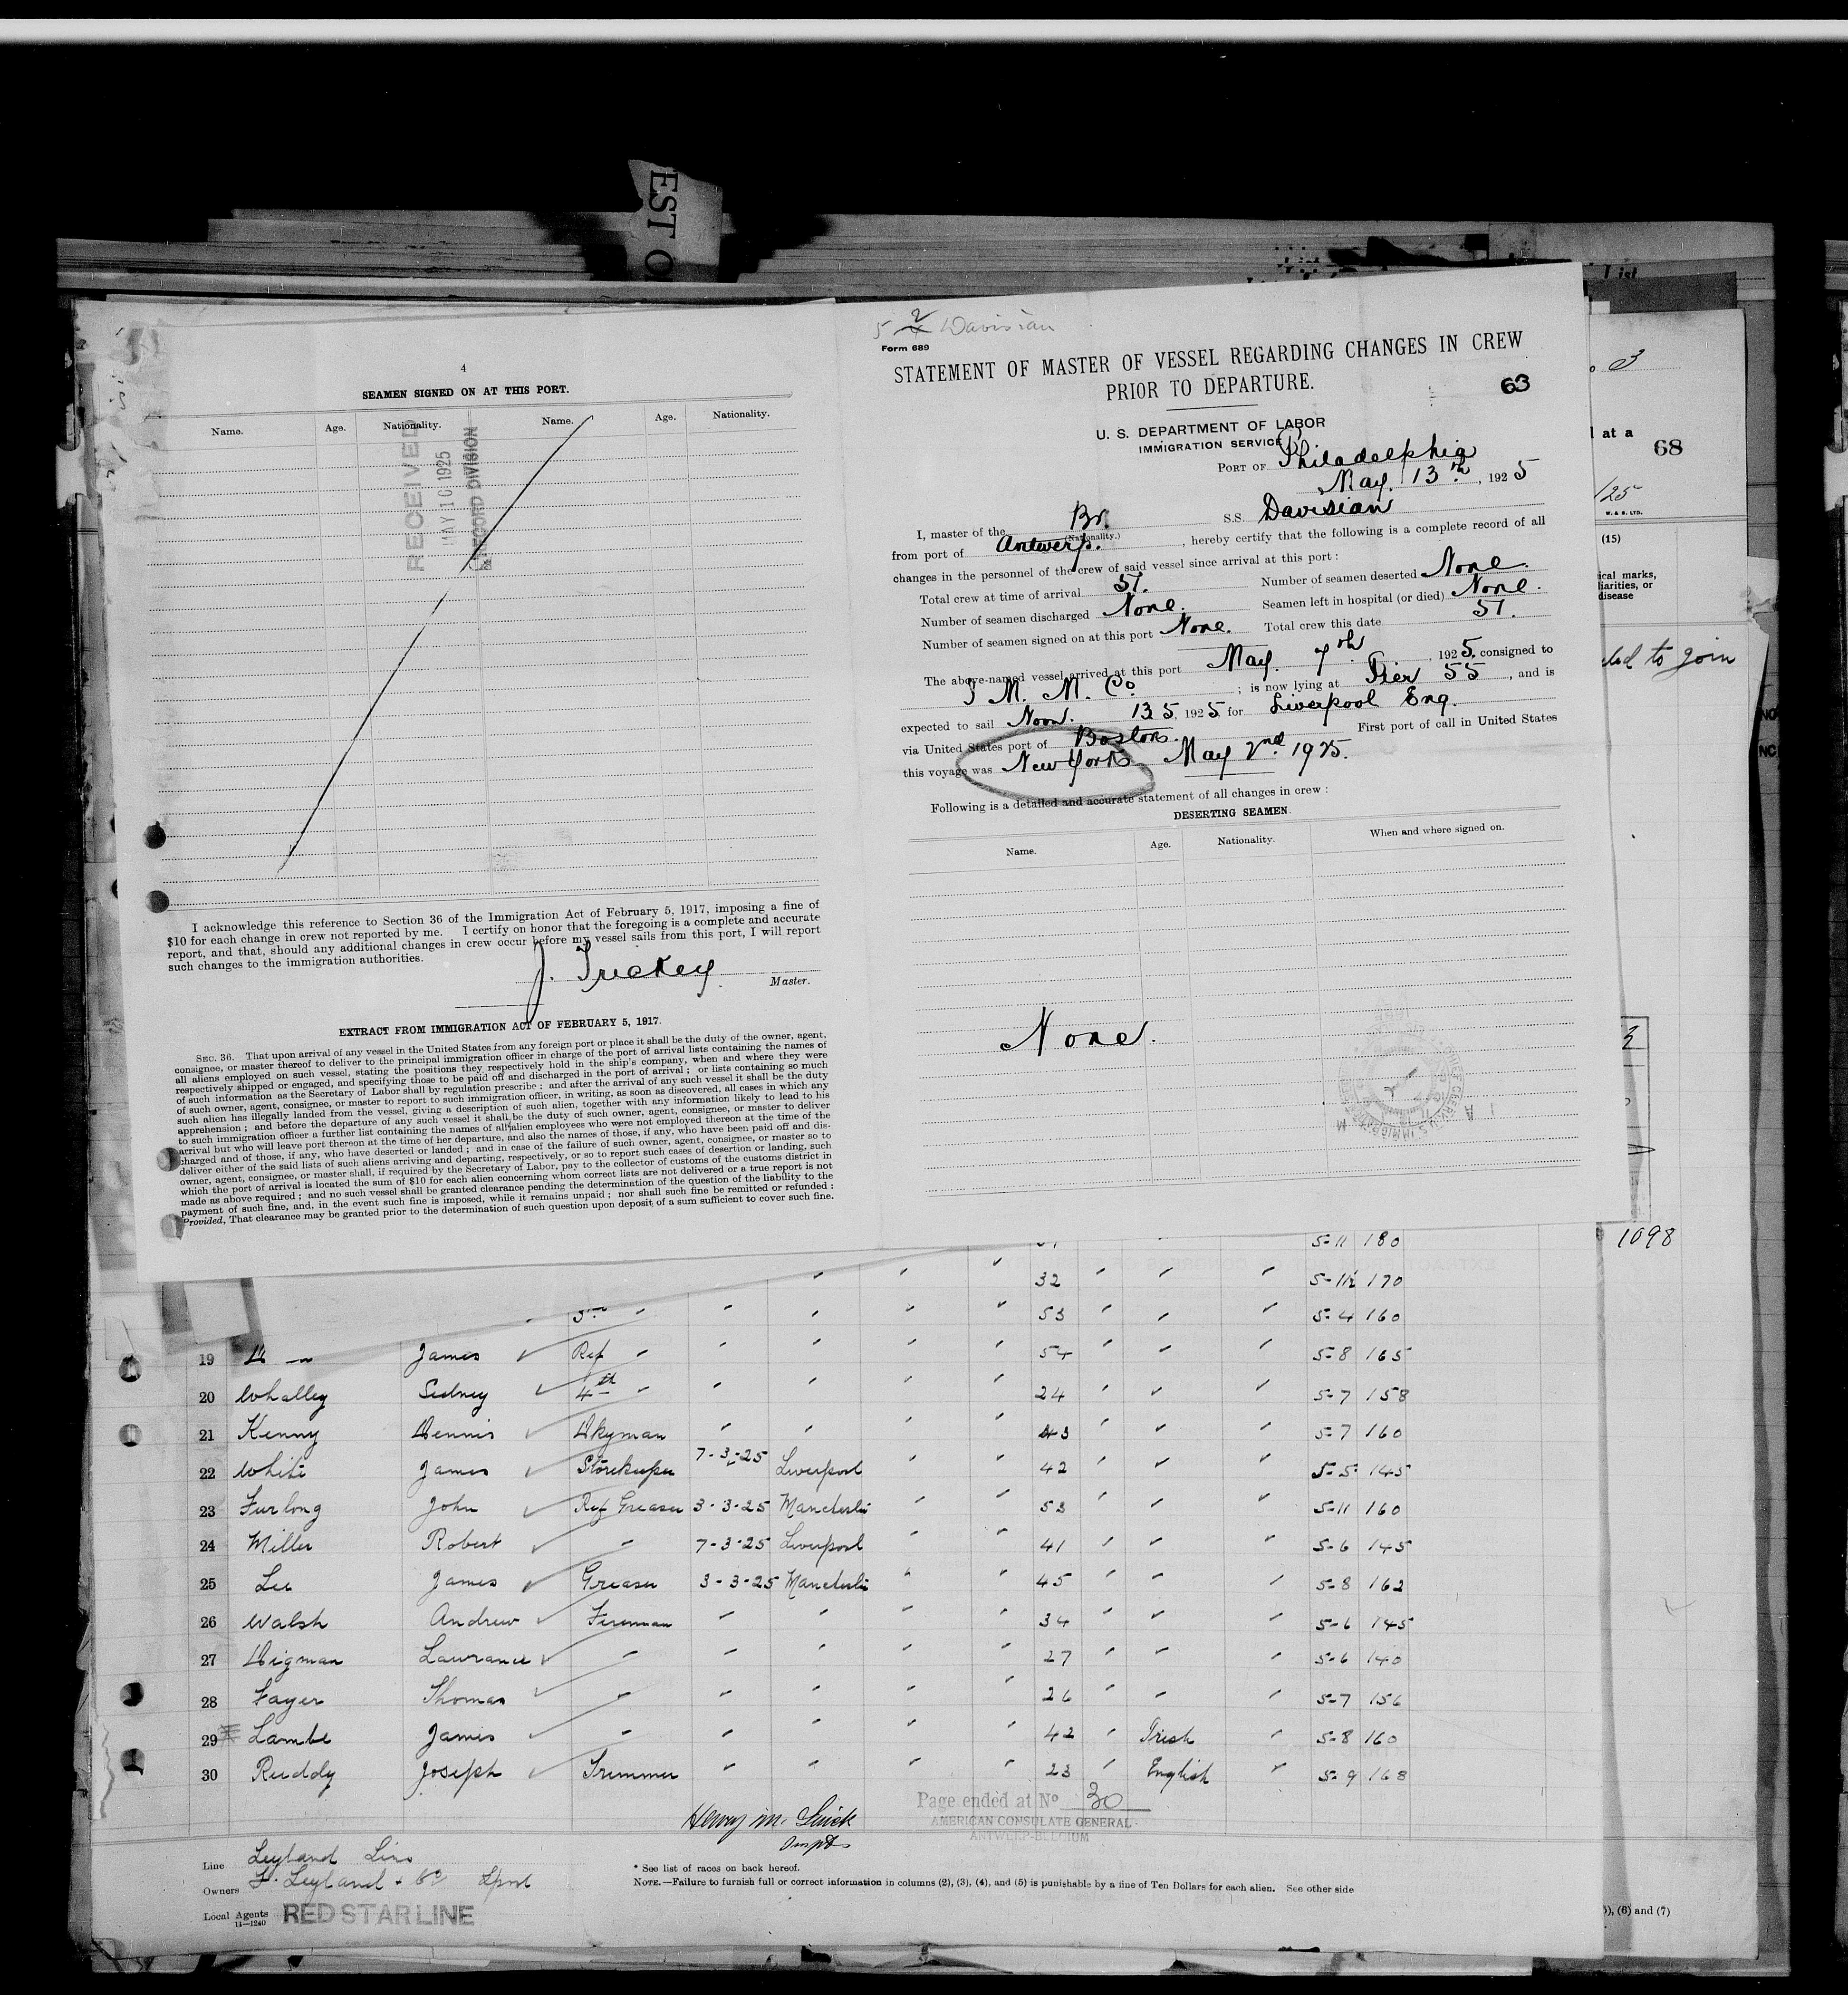 EST O
List
4
SEAMEN SIGNED ON AT THIS PORT.
Name. Age. Nationality. Name. Age. Nationality.
RECEIVED
MAY 16 1925
RECORD DIVISION
I acknowledge this reference to Section 36 of the Immigration Act of February 5, 1917, imposing a fine of
$10 for each change in crew not reported by me. I certify on honor that the foregoing is a complete and accurate
report, and that, should any additional changes in crew occur before my vessel sails from this port, I will report
such changes to the immigration authorities.
J. Trickey
Master.
EXTRACT FROM IMMIGRATION ACT OF FEBRUARY 5, 1917.
SEC. 36. That upon arrival of any vessel in the United States from any foreign port or place it shall be the duty of the owner, agent,
consignee, or master thereof to deliver to the principal immigration officer in charge of the port of arrival lists containing the names of
all aliens employed on such vessel, stating the positions they respectively hold in the ship's company, when and where they were
respectively shipped or engaged, and specifying those to be paid off and discharged in the port of arrival; or lists containing so much
of such information as the Secretary of Labor shall by regulation prescribe; and after the arrival of any such vessel it shall be the duty
of such owner, agent, consignee, or master to report to such immigration officer, in writing, as soon as discovered, all cases in which any
such alien has illegally landed from the vessel, giving a description of such alien, together with any information likely to lead to his
apprehension; and before the departure of any such vessel it shall be the duty of such owner, agent, consignee, or master to deliver
to such immigration officer a further list containing the names of all alien employees who were not employed thereon at the time of the
arrival but who will leave port thereon at the time of her departure, and also the names of those, if any, who have been paid off and dis-
charged and of those, if any, who have deserted or landed; and in case of the failure of such owner, agent, consignee, or master so to
deliver either of the said lists of such aliens arriving and departing, respectively, or so to report such cases of desertion or landing, such
owner, agent, consignee, or master shall, if required by the Secretary of Labor, pay to the collector of customs of the customs district in
which the port of arrival is located the sum of $10 for each alien concerning whom correct lists are not delivered or a true report is not
made as above required; and no such vessel shall be granted clearance pending the determination of the question of the liability to the
payment of such fine, and, in the event such fine is imposed, while it remains unpaid; nor shall such fine be remitted or refunded:
Provided, That clearance may be granted prior to the determination of such question upon deposit of a sum sufficient to cover such fine.
5 2 Davisian
Form 689
STATEMENT OF MASTER OF VESSEL REGARDING CHANGES IN CREW
PRIOR TO DEPARTURE.
63
U. S. DEPARTMENT OF LABOR
IMMIGRATION SERVICE
PORT OF Philadelphia
May. 13th, 1925
I, master of the Br. (Nationality.) S.S. Davisian
from port of Antwerp., hereby certify that the following is a complete record of all
changes in the personnel of the crew of said vessel since arrival at this port:
Total crew at time of arrival 51. Number of seamen deserted None.
Number of seamen discharged None. Seamen left in hospital (or died) None.
Number of seamen signed on at this port None. Total crew this date 51.
The above-named vessel arrived at this port May. 7th, 1925, consigned to
I. M. M. Co; is now lying at Pier 55, and is
expected to sail Noon. 13 5, 1925 for Liverpool Eng.
via United States port of Boston. First port of call in United States
this voyage was New York May 2nd 1925.
Following is a detailed and accurate statement of all changes in crew:
DESERTING SEAMEN.
Name. Age. Nationality. When and where signed on.
None.
3
at a
68
/25
W. & S. LTD.
(15)
ical marks,
liarities, or
disease
to join
1098
5-11 180
32 " " " 5-11½ 170
3rd " " " " " 53 " " " 5-4 160
19 James Ref " " " " " 54 " " " 5-8 165
20 Whalley Sidney 4th " " " " " 24 " " " 5-7 158
21 Kenny Dennis Dkyman " " " " 43 " " " 5-7 160
22 White James Storekeeper 7-3-25 Liverpool " " 42 " " " 5-5 145
23 Furlong John Ref Greaser 3-3-25 Manchester " " 53 " " " 5-11 160
24 Miller Robert " 7-3-25 Liverpool " " 41 " " " 5-6 145
25 Lee James Greaser 3-3-25 Manchester " " 45 " " " 5-8 162
26 Walsh Andrew Fireman " " " " 34 " " " 5-6 145
27 Digman Lawrance " " " " " 27 " " " 5-6 140
28 Fayer Thomas " " " " " 26 " " " 5-7 156
29 Lambe James " " " " " 42 " Irish " 5-8 160
30 Ruddy Joseph Trimmer " " " " 23 " English " 5-9 168
Page ended at No 30
AMERICAN CONSULATE GENERAL
ANTWERP-BELGIUM
Line Leyland Line
Owners F. Leyland & Co Lpool
Local Agents RED STAR LINE
14—1240
* See list of races on back hereof.
NOTE.—Failure to furnish full or correct information in columns (2), (3), (4), and (5) is punishable by a fine of Ten Dollars for each alien. See other side
(6) and (7)